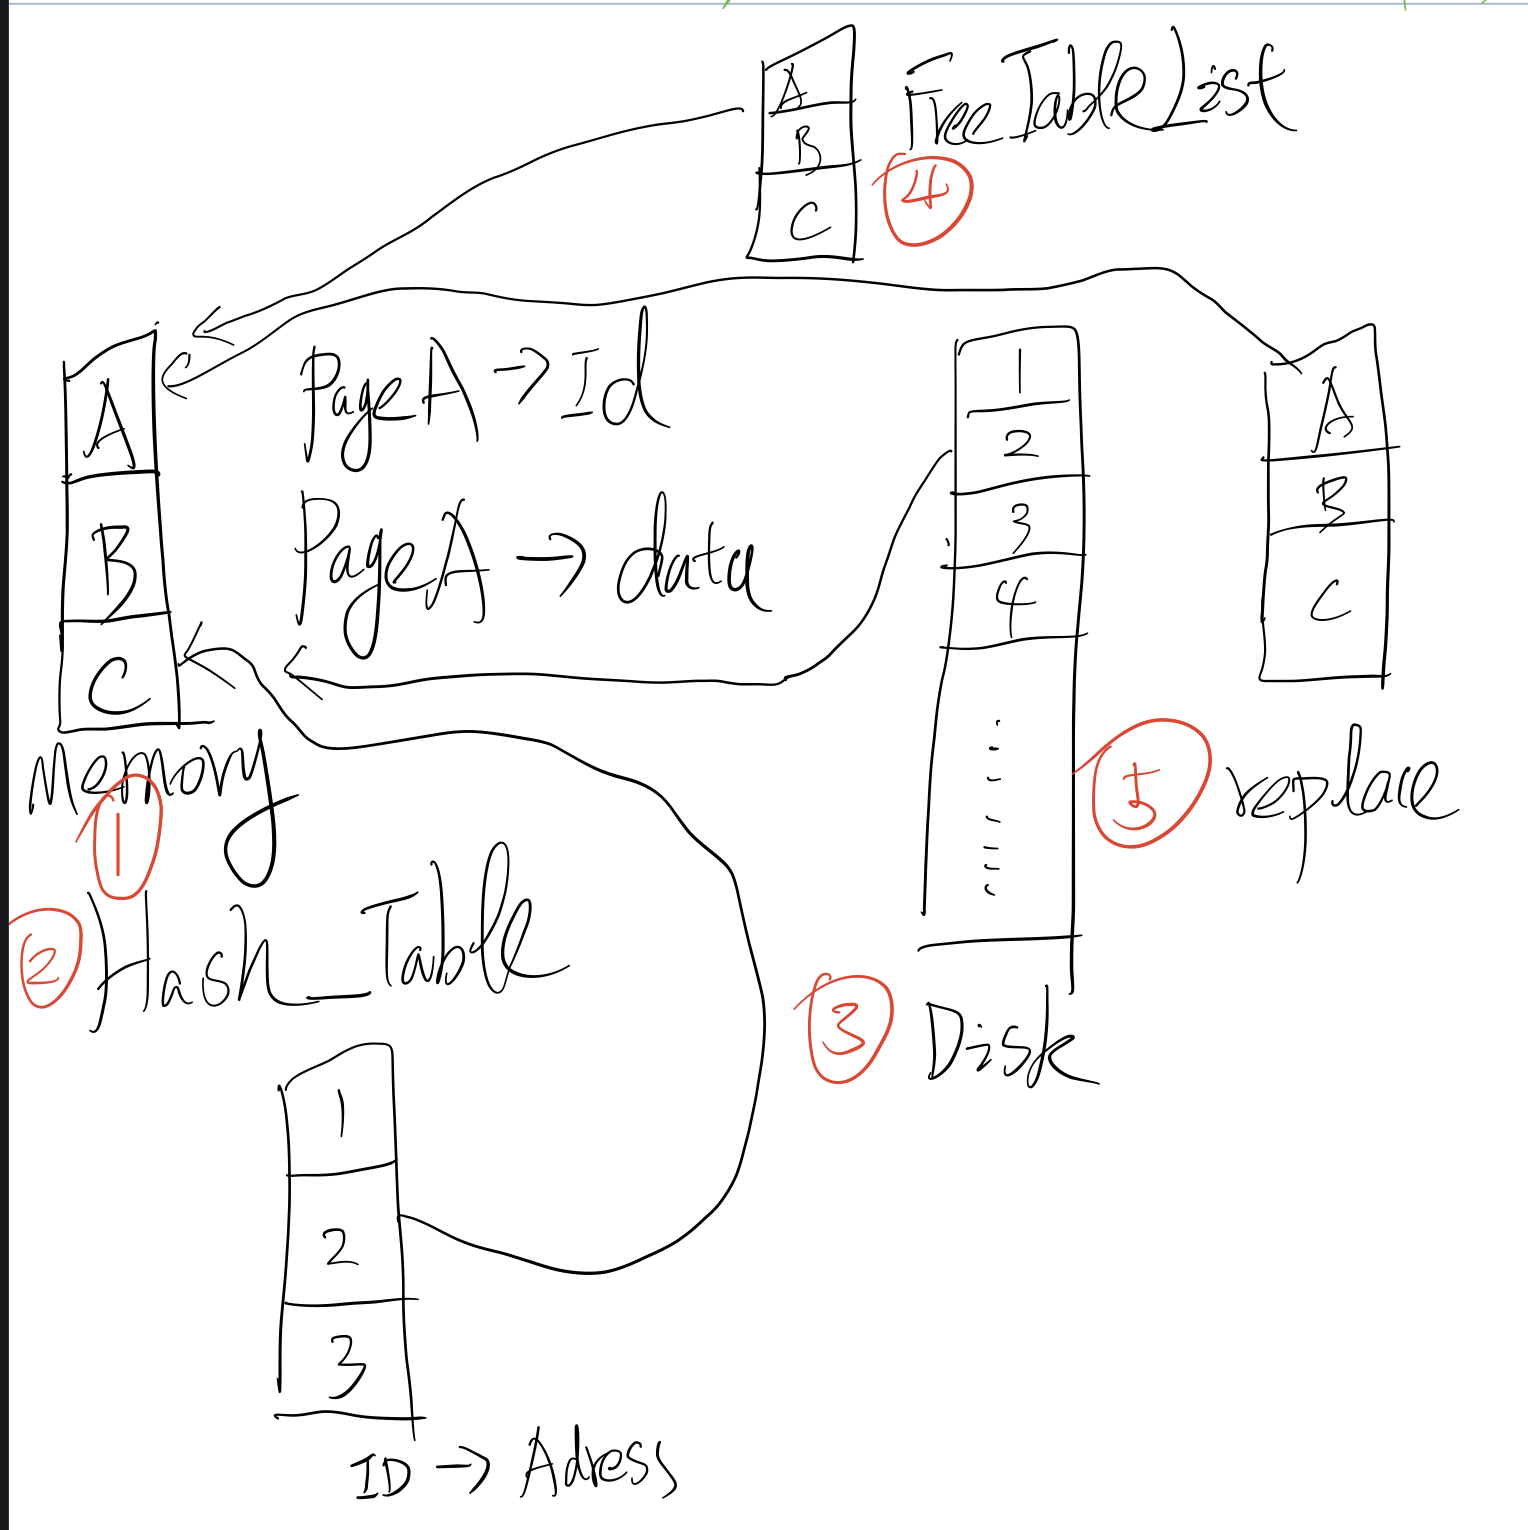 A
B
C
FreeTableList
4
A
B
C
Memory
1
PageA → Id
PageA → data
1
2
3
4
3
Disk
A
B
C
5
replace
2
Hash_Table
1
2
3
ID → Adress